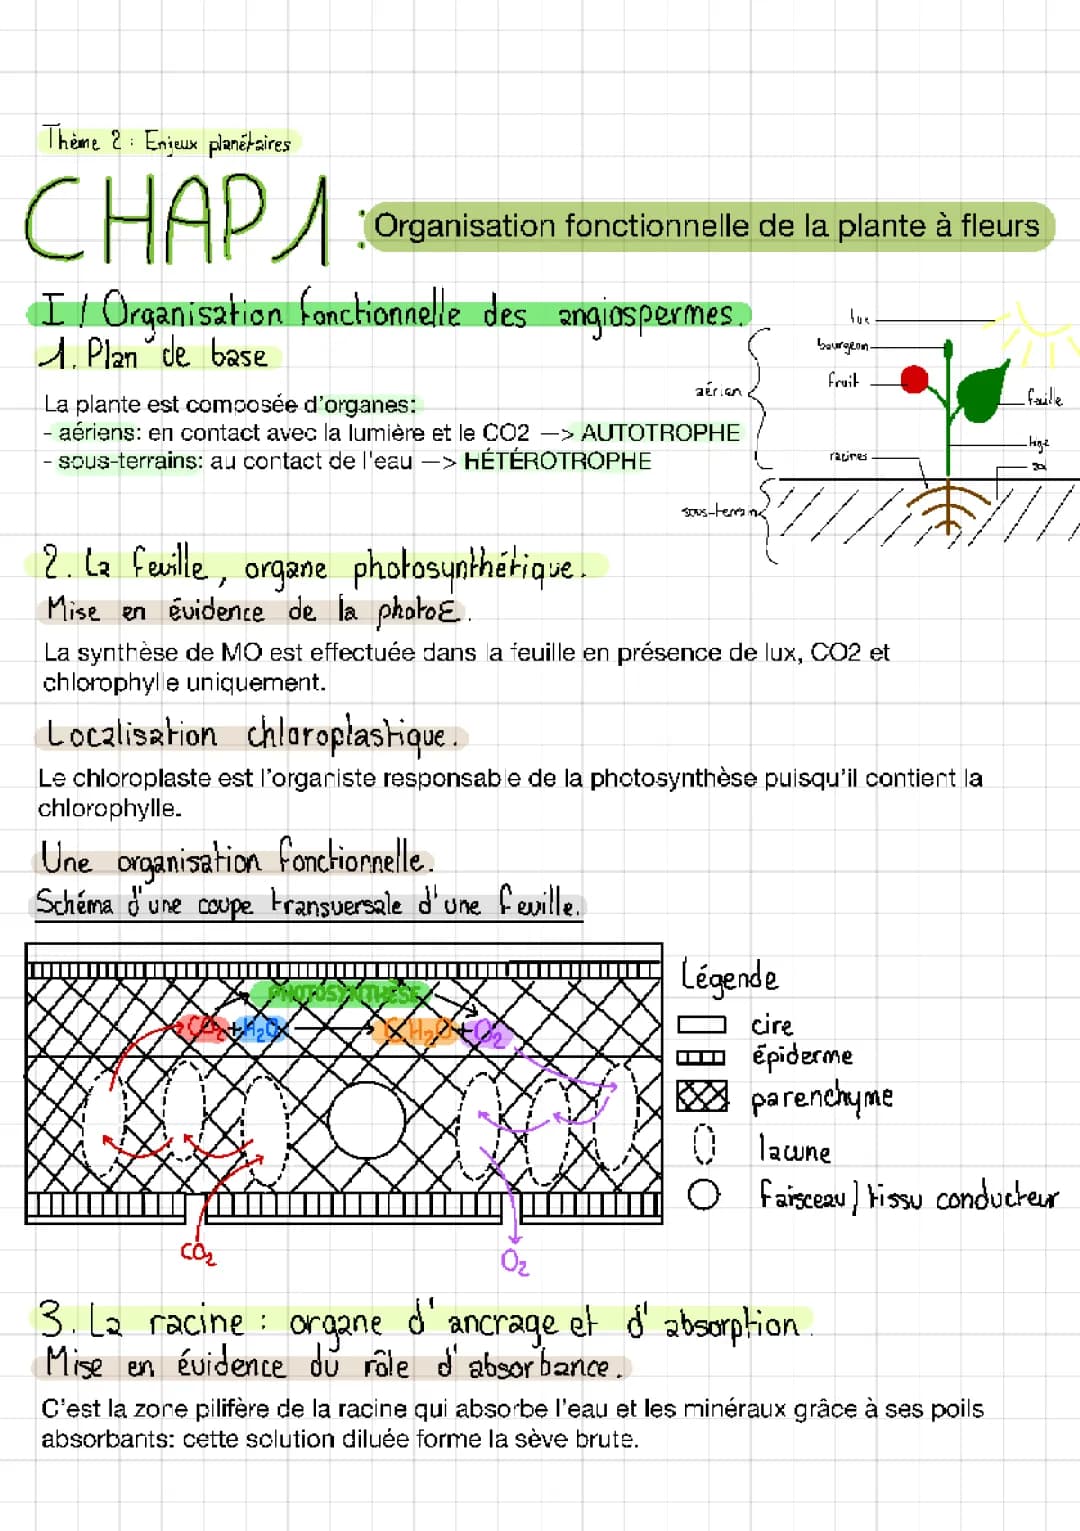 Thème 2 : Enjeux planétaires
CHAP 1 : Organisation fonctionnelle de la plante à fleurs
I / Organisation fonctionnelle des angiospermes.
1. Plan de base
La plante est composée d'organes:
- aériens: en contact avec la lumière et le CO2 —> AUTOTROPHE
- sous-terrains: au contact de l'eau —> HÉTÉROTROPHE
lux
bourgeon
fruit
aérien
feuille
tige
racines
sol
sous-terrain
2. La feuille, organe photosynthétique.
Mise en évidence de la photoE.
La synthèse de MO est effectuée dans la feuille en présence de lux, CO2 et
chlorophylle uniquement.
Localisation chloroplastique.
Le chloroplaste est l'organiste responsable de la photosynthèse puisqu'il contient la
chlorophylle.
Une organisation fonctionnelle.
Schéma d'une coupe transversale d'une feuille.
PHOTOSYNTHÈSE
CO₂ + H₂O CH₂O + O₂
CO₂
O₂
Légende
cire
épiderme
parenchyme
lacune
faisceau / tissu conducteur
3. La racine : organe d'ancrage et d'absorption.
Mise en évidence du rôle d'absorbance.
C'est la zone pilifère de la racine qui absorbe l'eau et les minéraux grâce à ses poils
absorbants: cette solution diluée forme la sève brute.